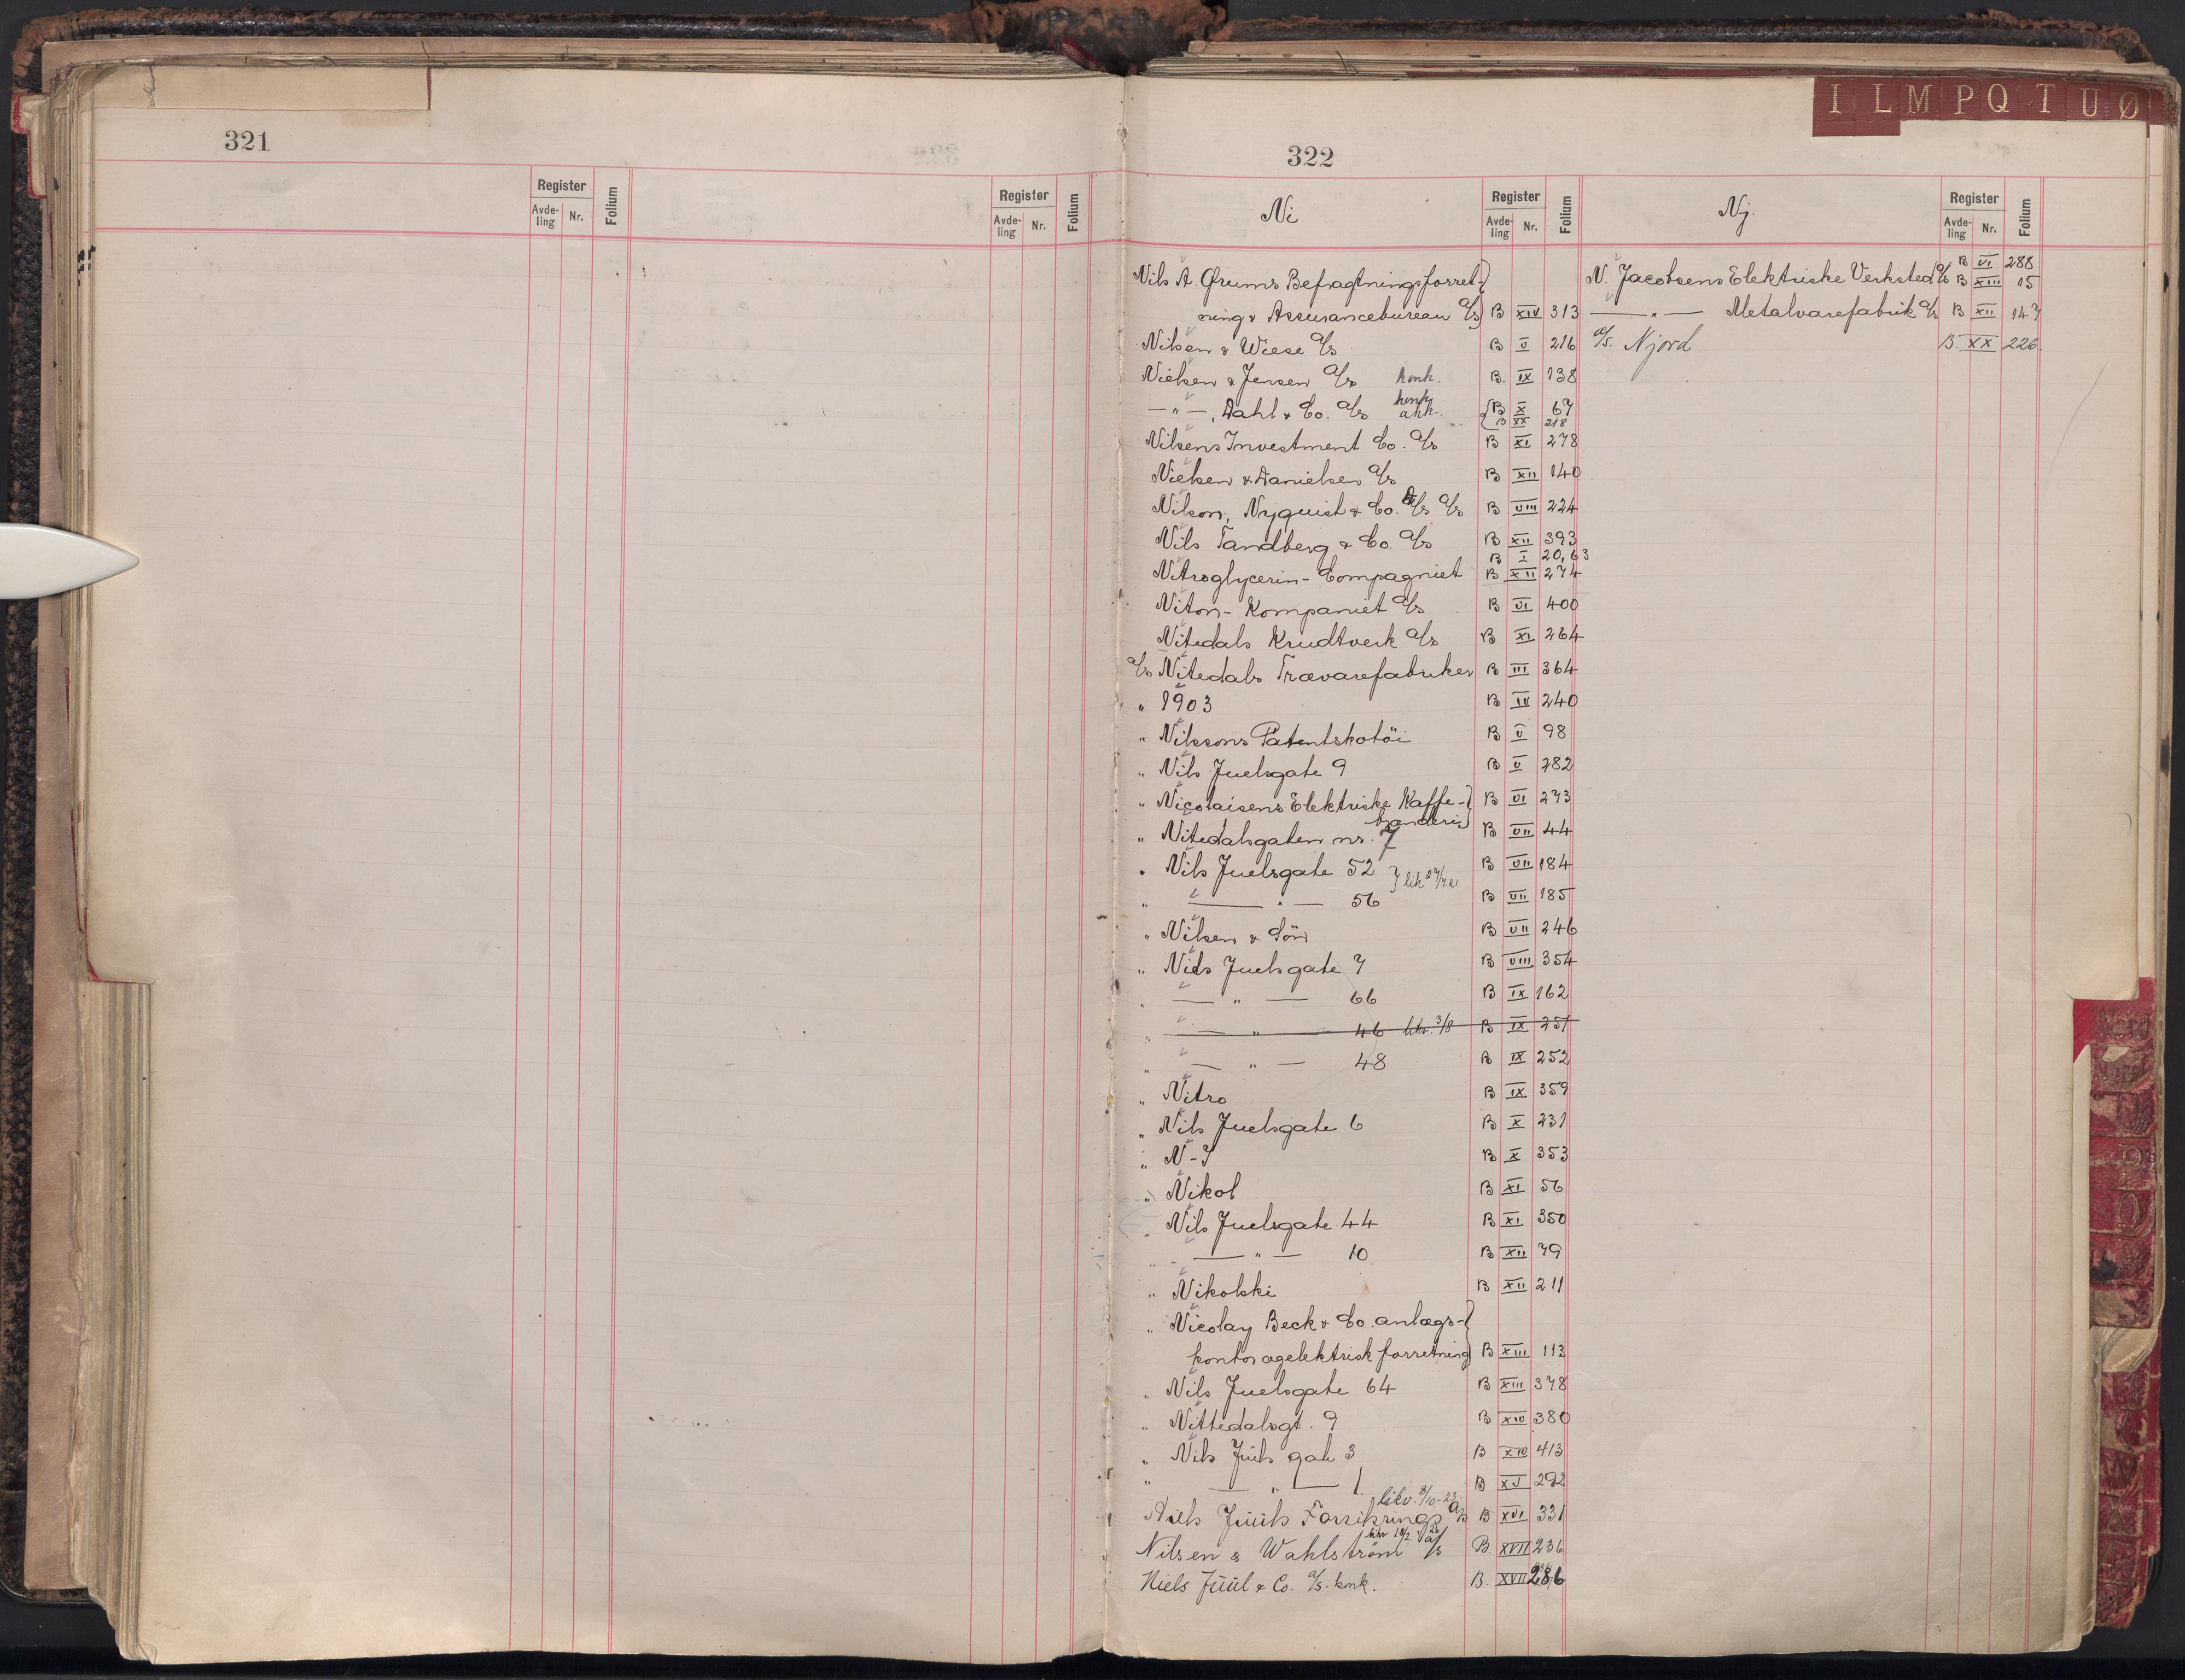 321
Register
Avde-
ling
Nr.
Folium
Register
Avde-
ling
Nr.
Folium
I L M P Q T U Ø
322
Ni
Register
Avde-
ling
Nr.
Folium
Nj.
Register
Avde-
ling
Nr.
Folium
Nils A. Ørums Befragtningsforret-
ning & Assurancebureau A/s B XIV 313
Nilsen & Wiese A/s B V 216
Nielsen & Jensen A/s konk. B. IX 138
— " —, Dahl & Co. A/s konk. B X 67
B XX 218
Nilsens Investment Co. A/s B XI 278
Nielsen & Danielsen A/s B XII 140
Nilson, Nyquist & Co. A/s A/s B VIII 224
Nils Tandberg & Co. A/s B XII 393
B I 20, 63
Nitroglycerin-Compagniet B XII 274
Niton-Kompaniet A/s B VI 400
Nitedals Krudtverk A/s B XI 264
A/s Nitedals Trævarefabriker B III 364
" 1903 B IV 240
" Nilssons Patentskotöi B V 98
" Nils Juelsgate 9 B V 282
" Nicolaisens Elektriske Kaffe-
brænderi B VI 273
" Nitedalsgaten nr. 7 B VII 44
" Nils Juelsgate 52 B VII 184
" — " — 56 B VII 185
" Nilsen & Sön B VII 246
" Niels Juelsgate 7 B VIII 354
" — " — 66 B IX 162
" — " — 46 likv. 3/8 B IX 251
" — " — 48 B IX 252
" Nitro B IX 359
" Nils Juelsgate 6 B X 231
" N-J B X 353
" Nikol B XI 56
" Nils Juelsgate 44 B XI 350
" — " — 10 B XII 79
" Nikolski B XII 211
" Nicolay Beck & Co. anlægs-
kontor og elektrisk forretning B XIII 113
" Nils Juelsgate 64 B XIII 378
" Nittedalsgt. 9 B XIV 380
" Nils Juels gate 3 B XIV 413
" — " — 1. B XV 292
likv. 8/10-23
Niels Juuls Forsikrings A/s B XVI 331
Nilsen & Wahlström A/s B. XVII 236
Niels Juul & Co. A/s. konk. B. XVII 286
N. Jacobsens Elektriske Verksted A/s B VI 288
B XIII 15
— " — Metalvarefabrik A/s B XII 147
A/s. Njord B. XX 226.